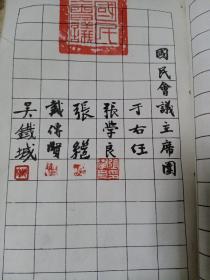 國民會議主席團
于右任
張學良
張繼
戴傳賢
吳鐵城